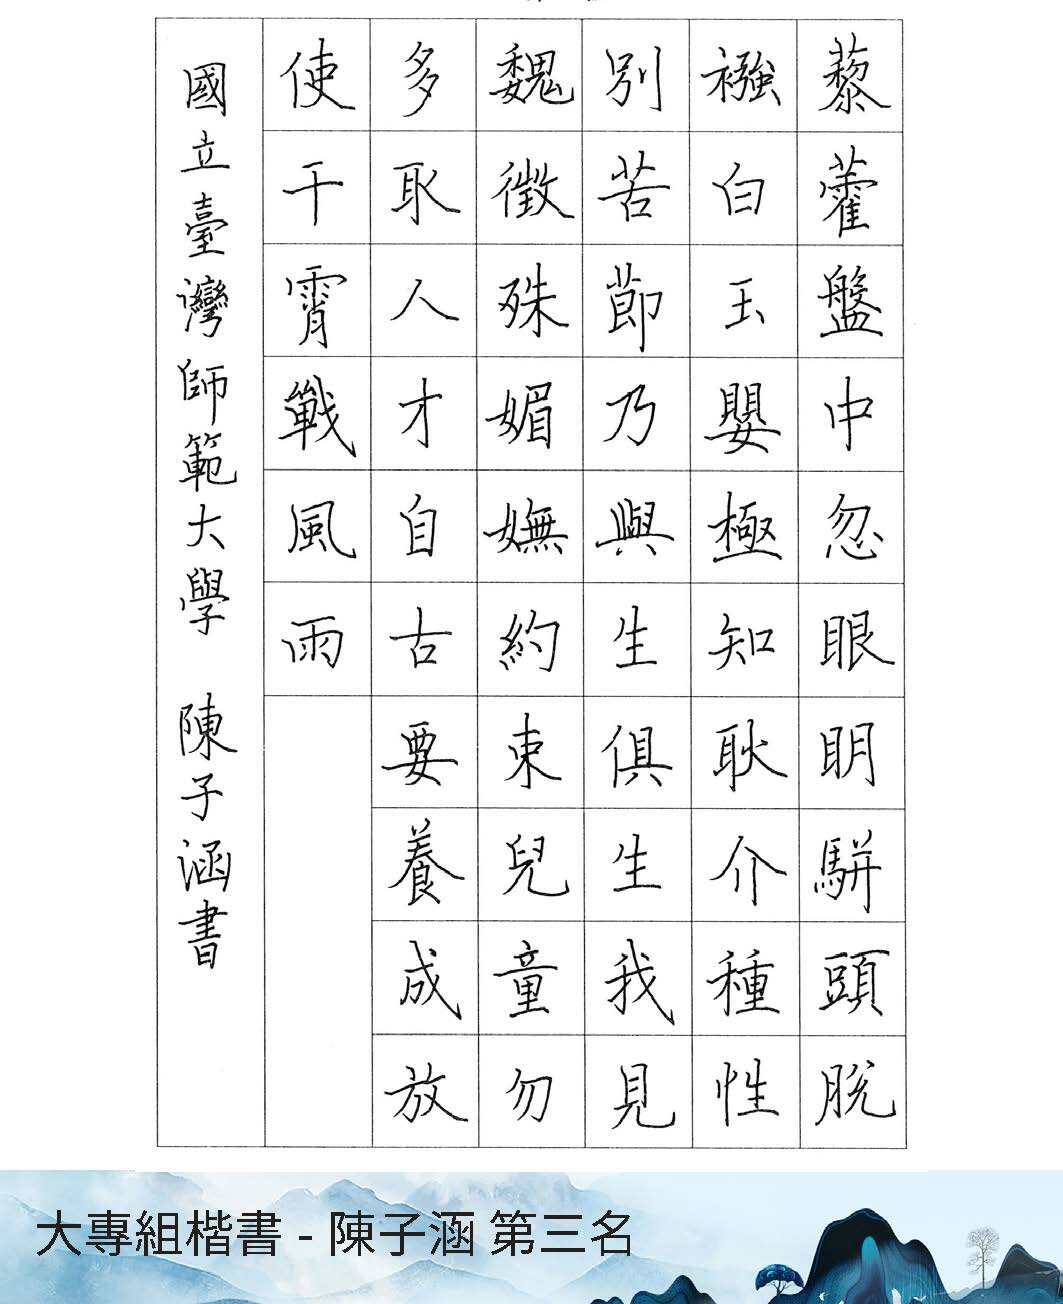 藜藿盤中忽眼明駢頭脫
襁白玉嬰極知耿介種性
別苦節乃與生俱生我見
魏徵殊媚嫵約束兒童勿
多取人才自古要養成放
使干霄戰風雨
國立臺灣師範大學 陳子涵書
大專組楷書 - 陳子涵 第三名